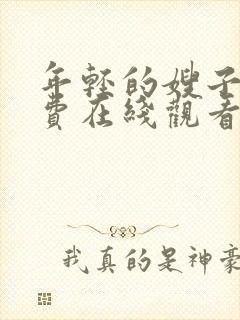 年轻的嫂子
費在綫觀看
我真的是神豪